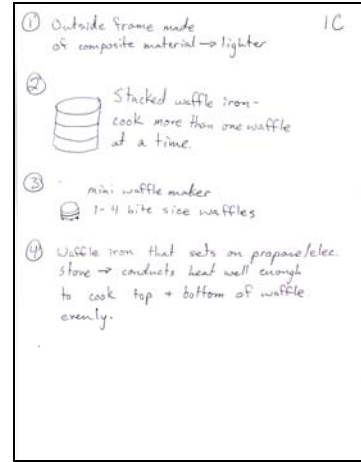 1C
① Outside frame made
of composite material → lighter
②
Stacked waffle iron -
cook more than one waffle
at a time.
③
mini waffle maker
1-4 bite size waffles
④ Waffle iron that sets on propane/elec.
stove → conducts heat well enough
to cook top + bottom of waffle
evenly.